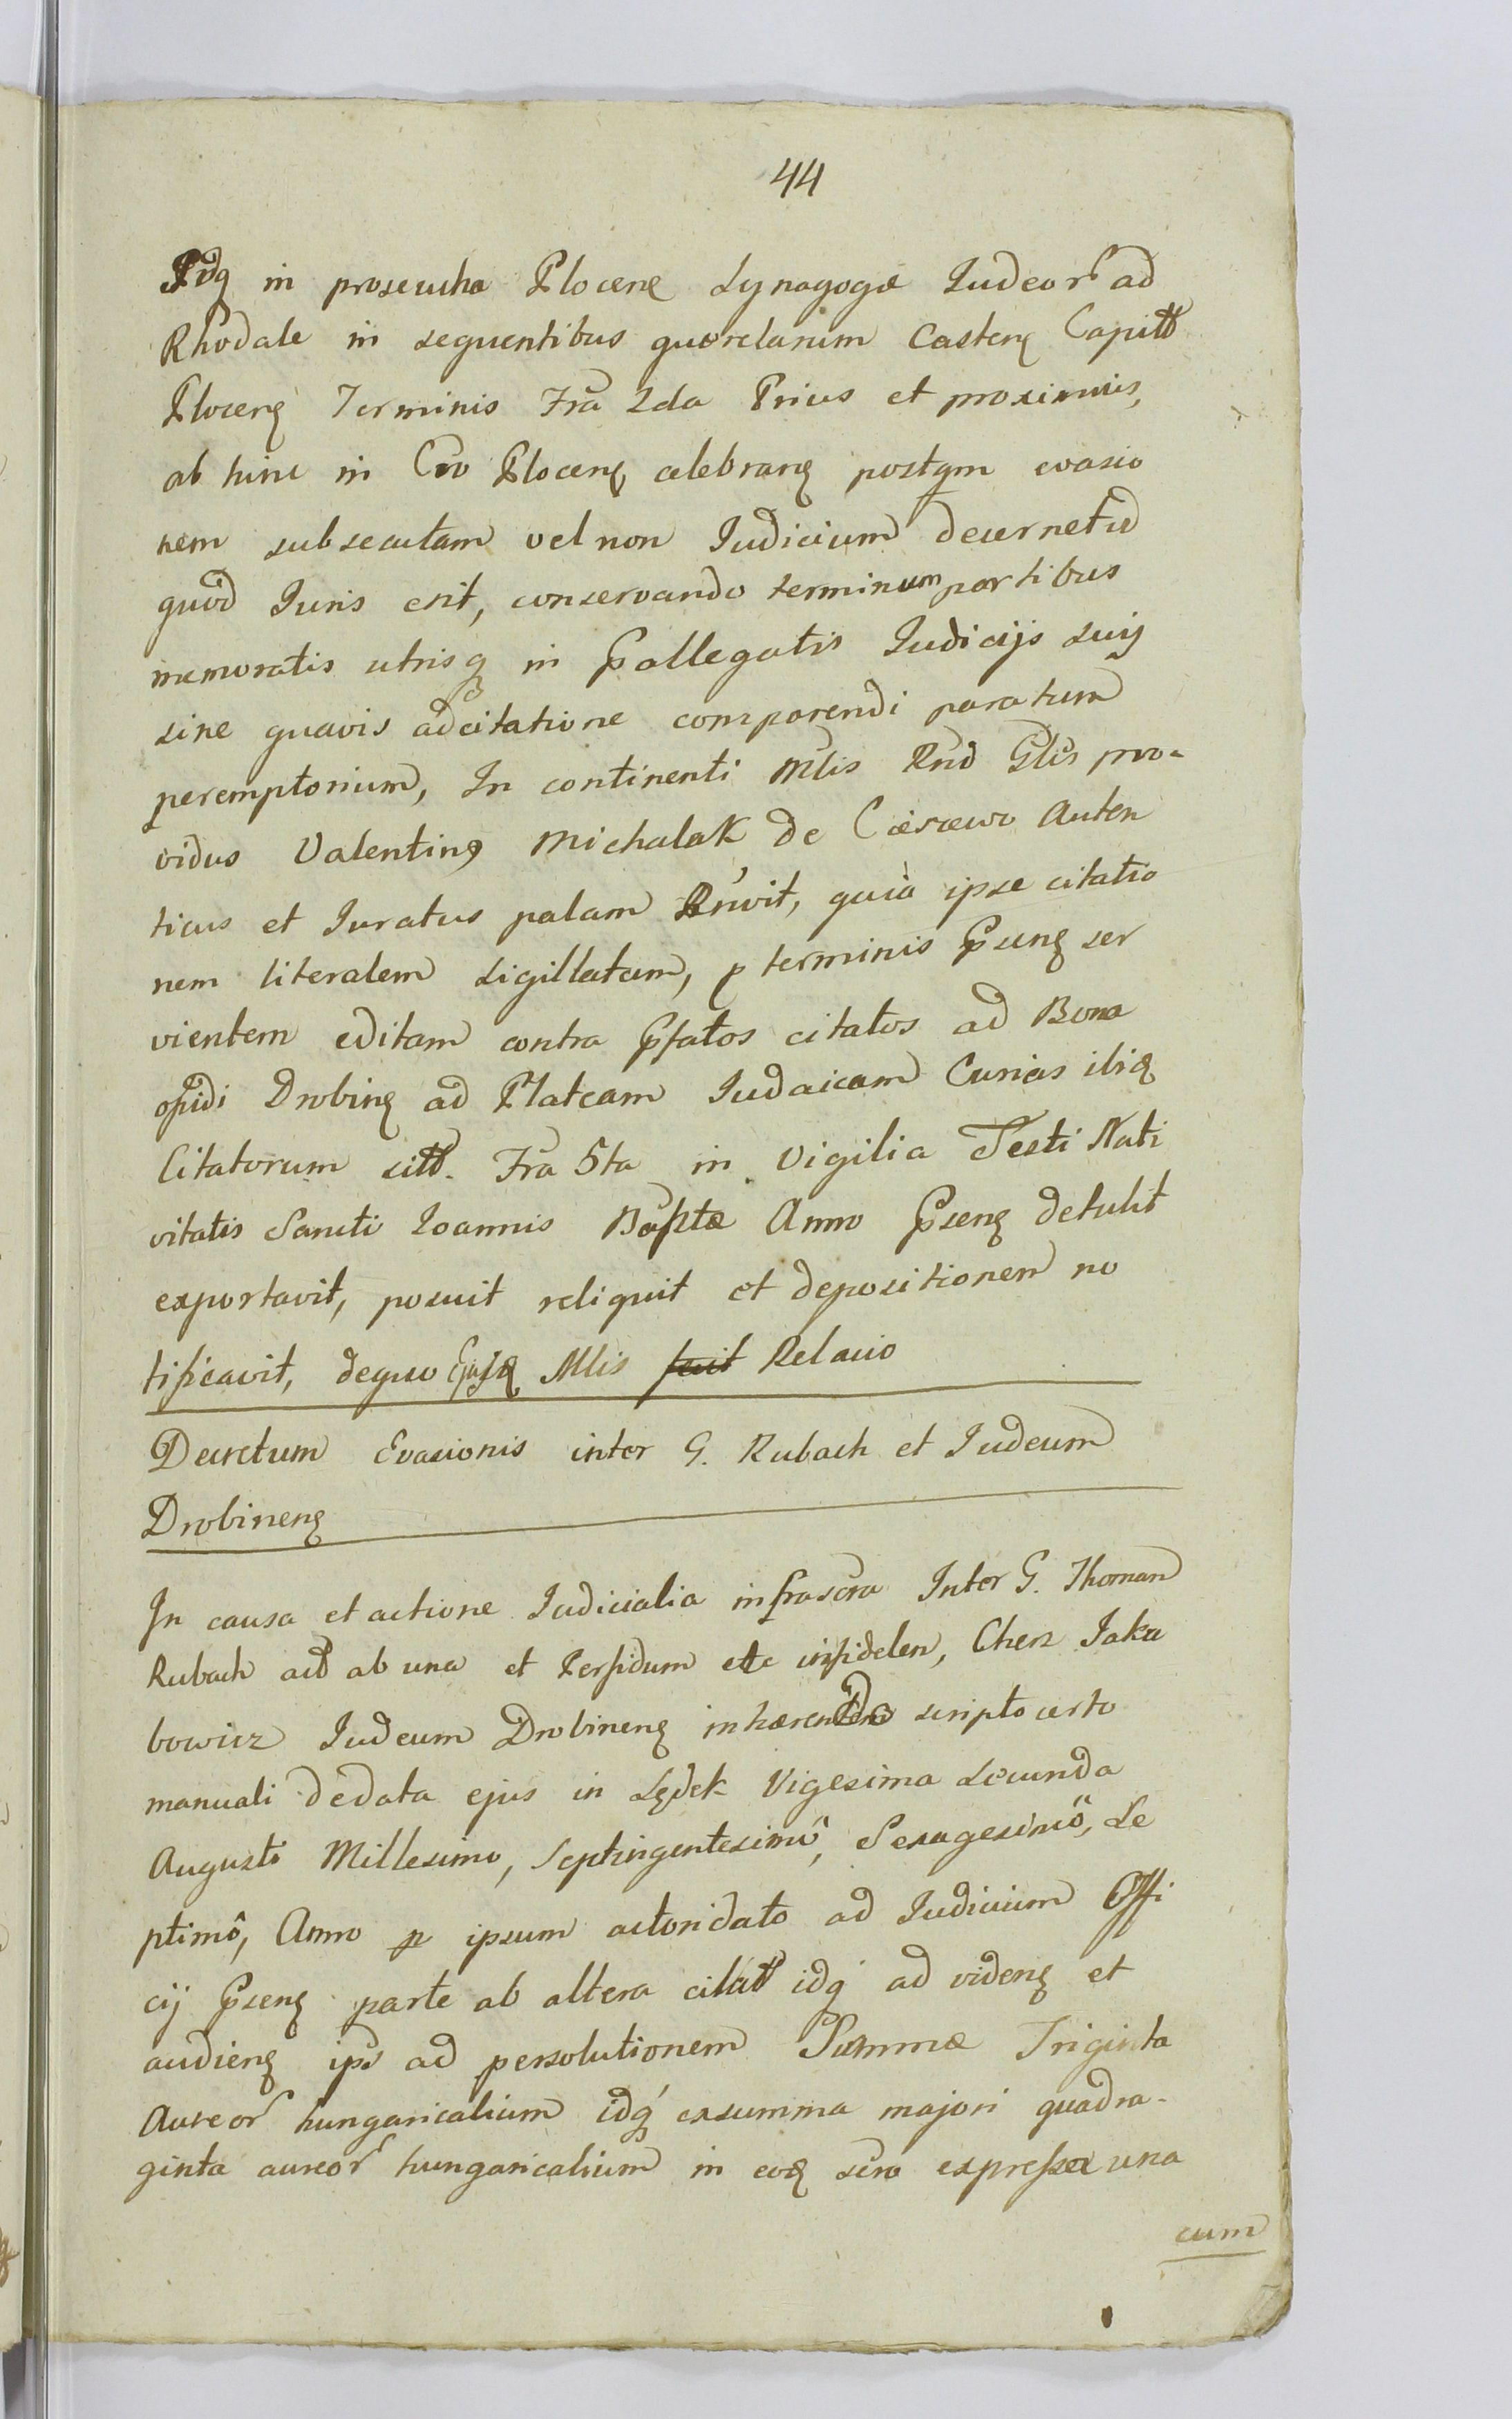 44
Idq in proseucha Plocens Synagogæ Iudeor ad
Rhodale in sequentibus querelarum Castens Capitt
Plocens Terminis Fra 2da Prius et proximis,
ab hinc in Cro Plocens celebrans postqm evasio
nem subsecutam vel non Iudicium decernet id
quod Iuris erit, conservando terminum partibus
memoratis utrisq in Pallegatis Iudicijs suis
sine quavis adcitatione comparendi paratum
peremptorium, In continenti Mlis Rnd Glis pro-
vidus Valentinus Michalak de Auten
ticus et Iuratus palam Rnvit, quia ipse citatio
nem literalem sigillatam, p terminis Psens ser
vientem editam contra Pfatos citatos ad Bona
opidi Drobins ad Plateam Iudaicam Curias ibiq
Citatorum sitt. Fra 5ta in Vigilia Festi Nati
vitatis Sancti Ioannis Baptæ Anno Psens detulit
exportavit, posuit reliquit et depositionem no
tificavit, dequo Mlis fecit Relacio
Decretum Evasionis inter G. Rubach et Iudeum
Drobinens
In causa et actione Iudicialia infrascra Inter G. Thomam
Rubach act ab una et Perfidum etc infidelen, Chers Iaku
bowicz Iudeum Drobinens inhærendo scripto certo
manuali dedata ejus in Lędek Vigesima secunda
Augusti Millesimo, Septingentesimô, Sexagesimô, Se
ptimô, Anno p ipsum actoridato ad Iudicium Offi
cij Psens parte ab altera citatt idq ad videns et
audiens ips ad persolutionem Summæ Triginta
Aureor hungaricalium idq exsumma majori quadra-
ginta aureor hungaricalium in eod scro expressa una
cum